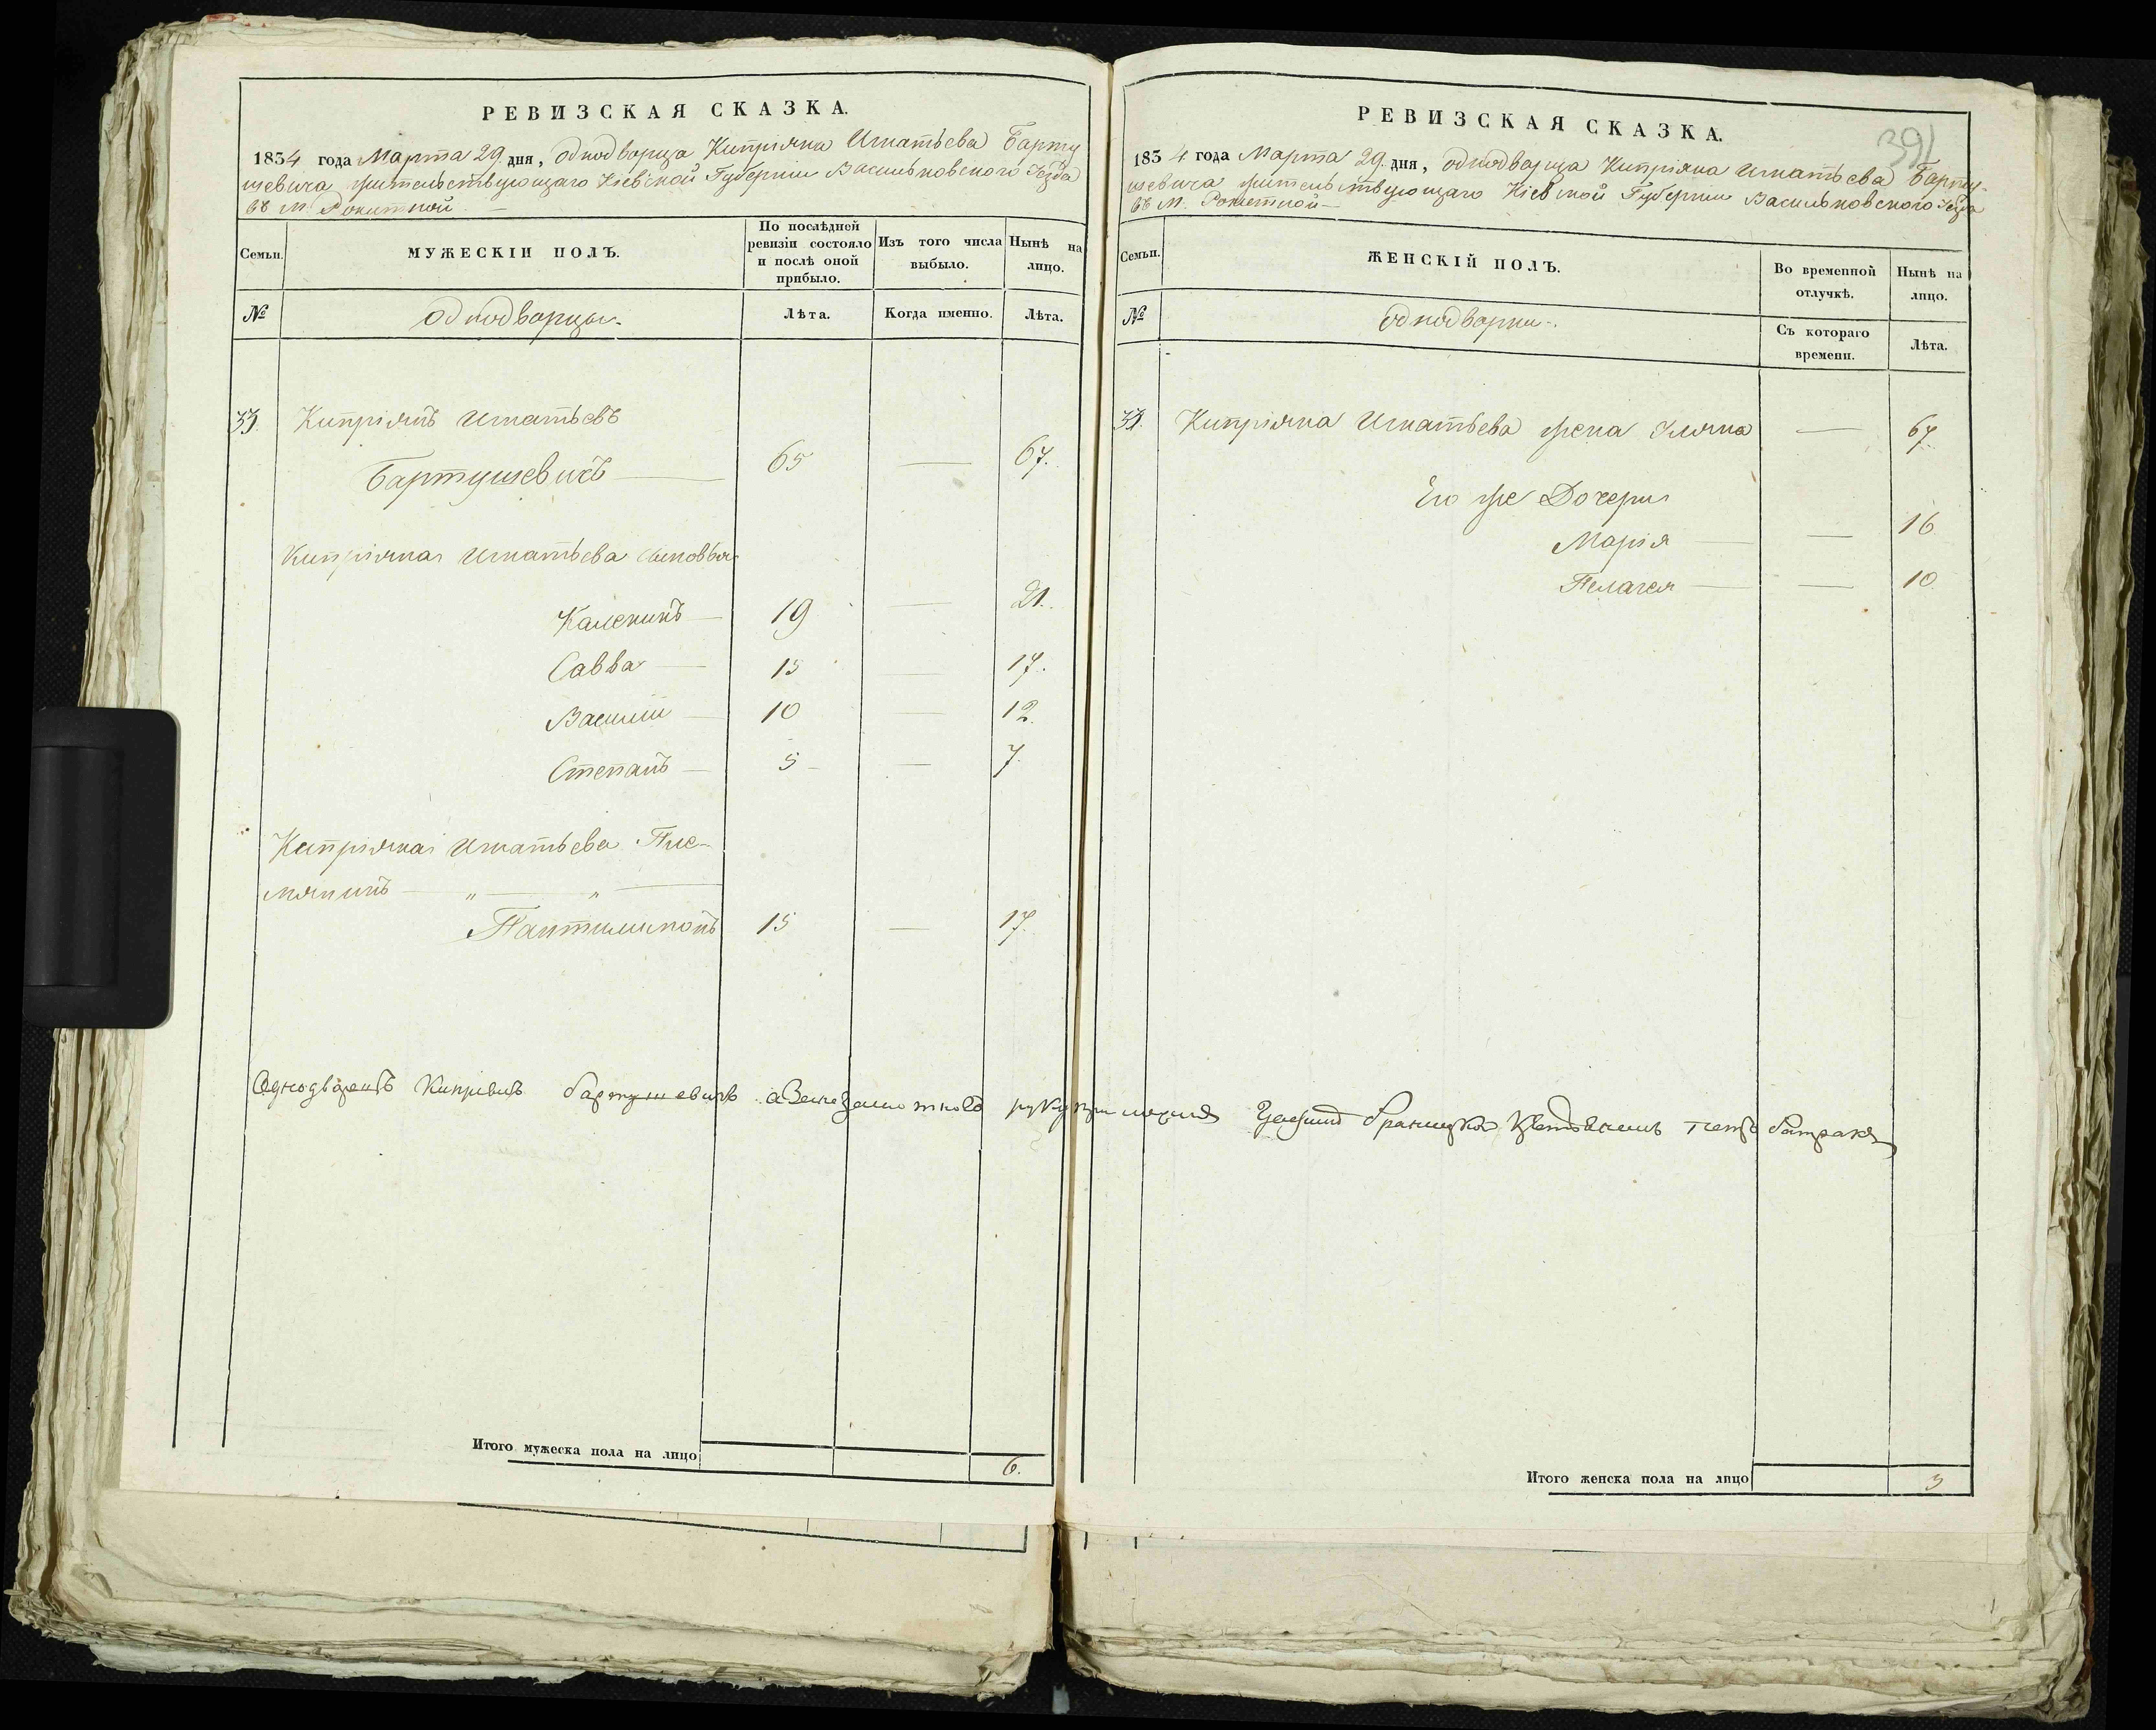 РЕВИЗСКАЯ СКАЗКА.
1854 года Марта 29 дня, однодворца Кипріяна Игнатьева Барту
шевича жительствующаго Кіевской Губерніи Васильковского Уезда
въ М. Рокитной
Семьи.
МУЖЕСКІЙ ПОЛЪ.
По послѣдней ревизіи состояло и послѣ оной прибыло.
Изъ того числа выбыло.
Нынѣ на лицо.
№
однодворцы.
Лѣта.
Когда именно.
Лѣта.
33. Кипріянъ Игнатьевъ
Бартушевичъ — 65 — 67.
Кипріяна Игнатьева сыновья
Каленикъ — 19 — 21.
Савва — 15 — 17.
Василій — 10 — 12.
Степанъ — 5 — 7.
Кипріяна Игнатьева Пле-
мяникъ — „ — „ —
Пантилимонъ 15 — 17.
Однодворецъ Кипріянъ бартушевичъ а
Итого мужеска пола на лицо 6.
391
РЕВИЗСКАЯ СКАЗКА.
1854 года Марта 29. дня, однодворца Кипріяна Игнатьева Барту-
шевича жительствующаго Кіевской Губерніи Васильковского Уезда
въ М. Рокитной —
Семьи.
ЖЕНСКІЙ ПОЛЪ.
Во временной отлучкѣ.
Нынѣ на лицо.
№
однодворки.
Съ котораго времени.
Лѣта.
33. Кипріяна Игнатьева жена — 67.
Его же Дочери
Марія — — 16.
Пелагея — — 10.
Итого женска пола на лицо 3